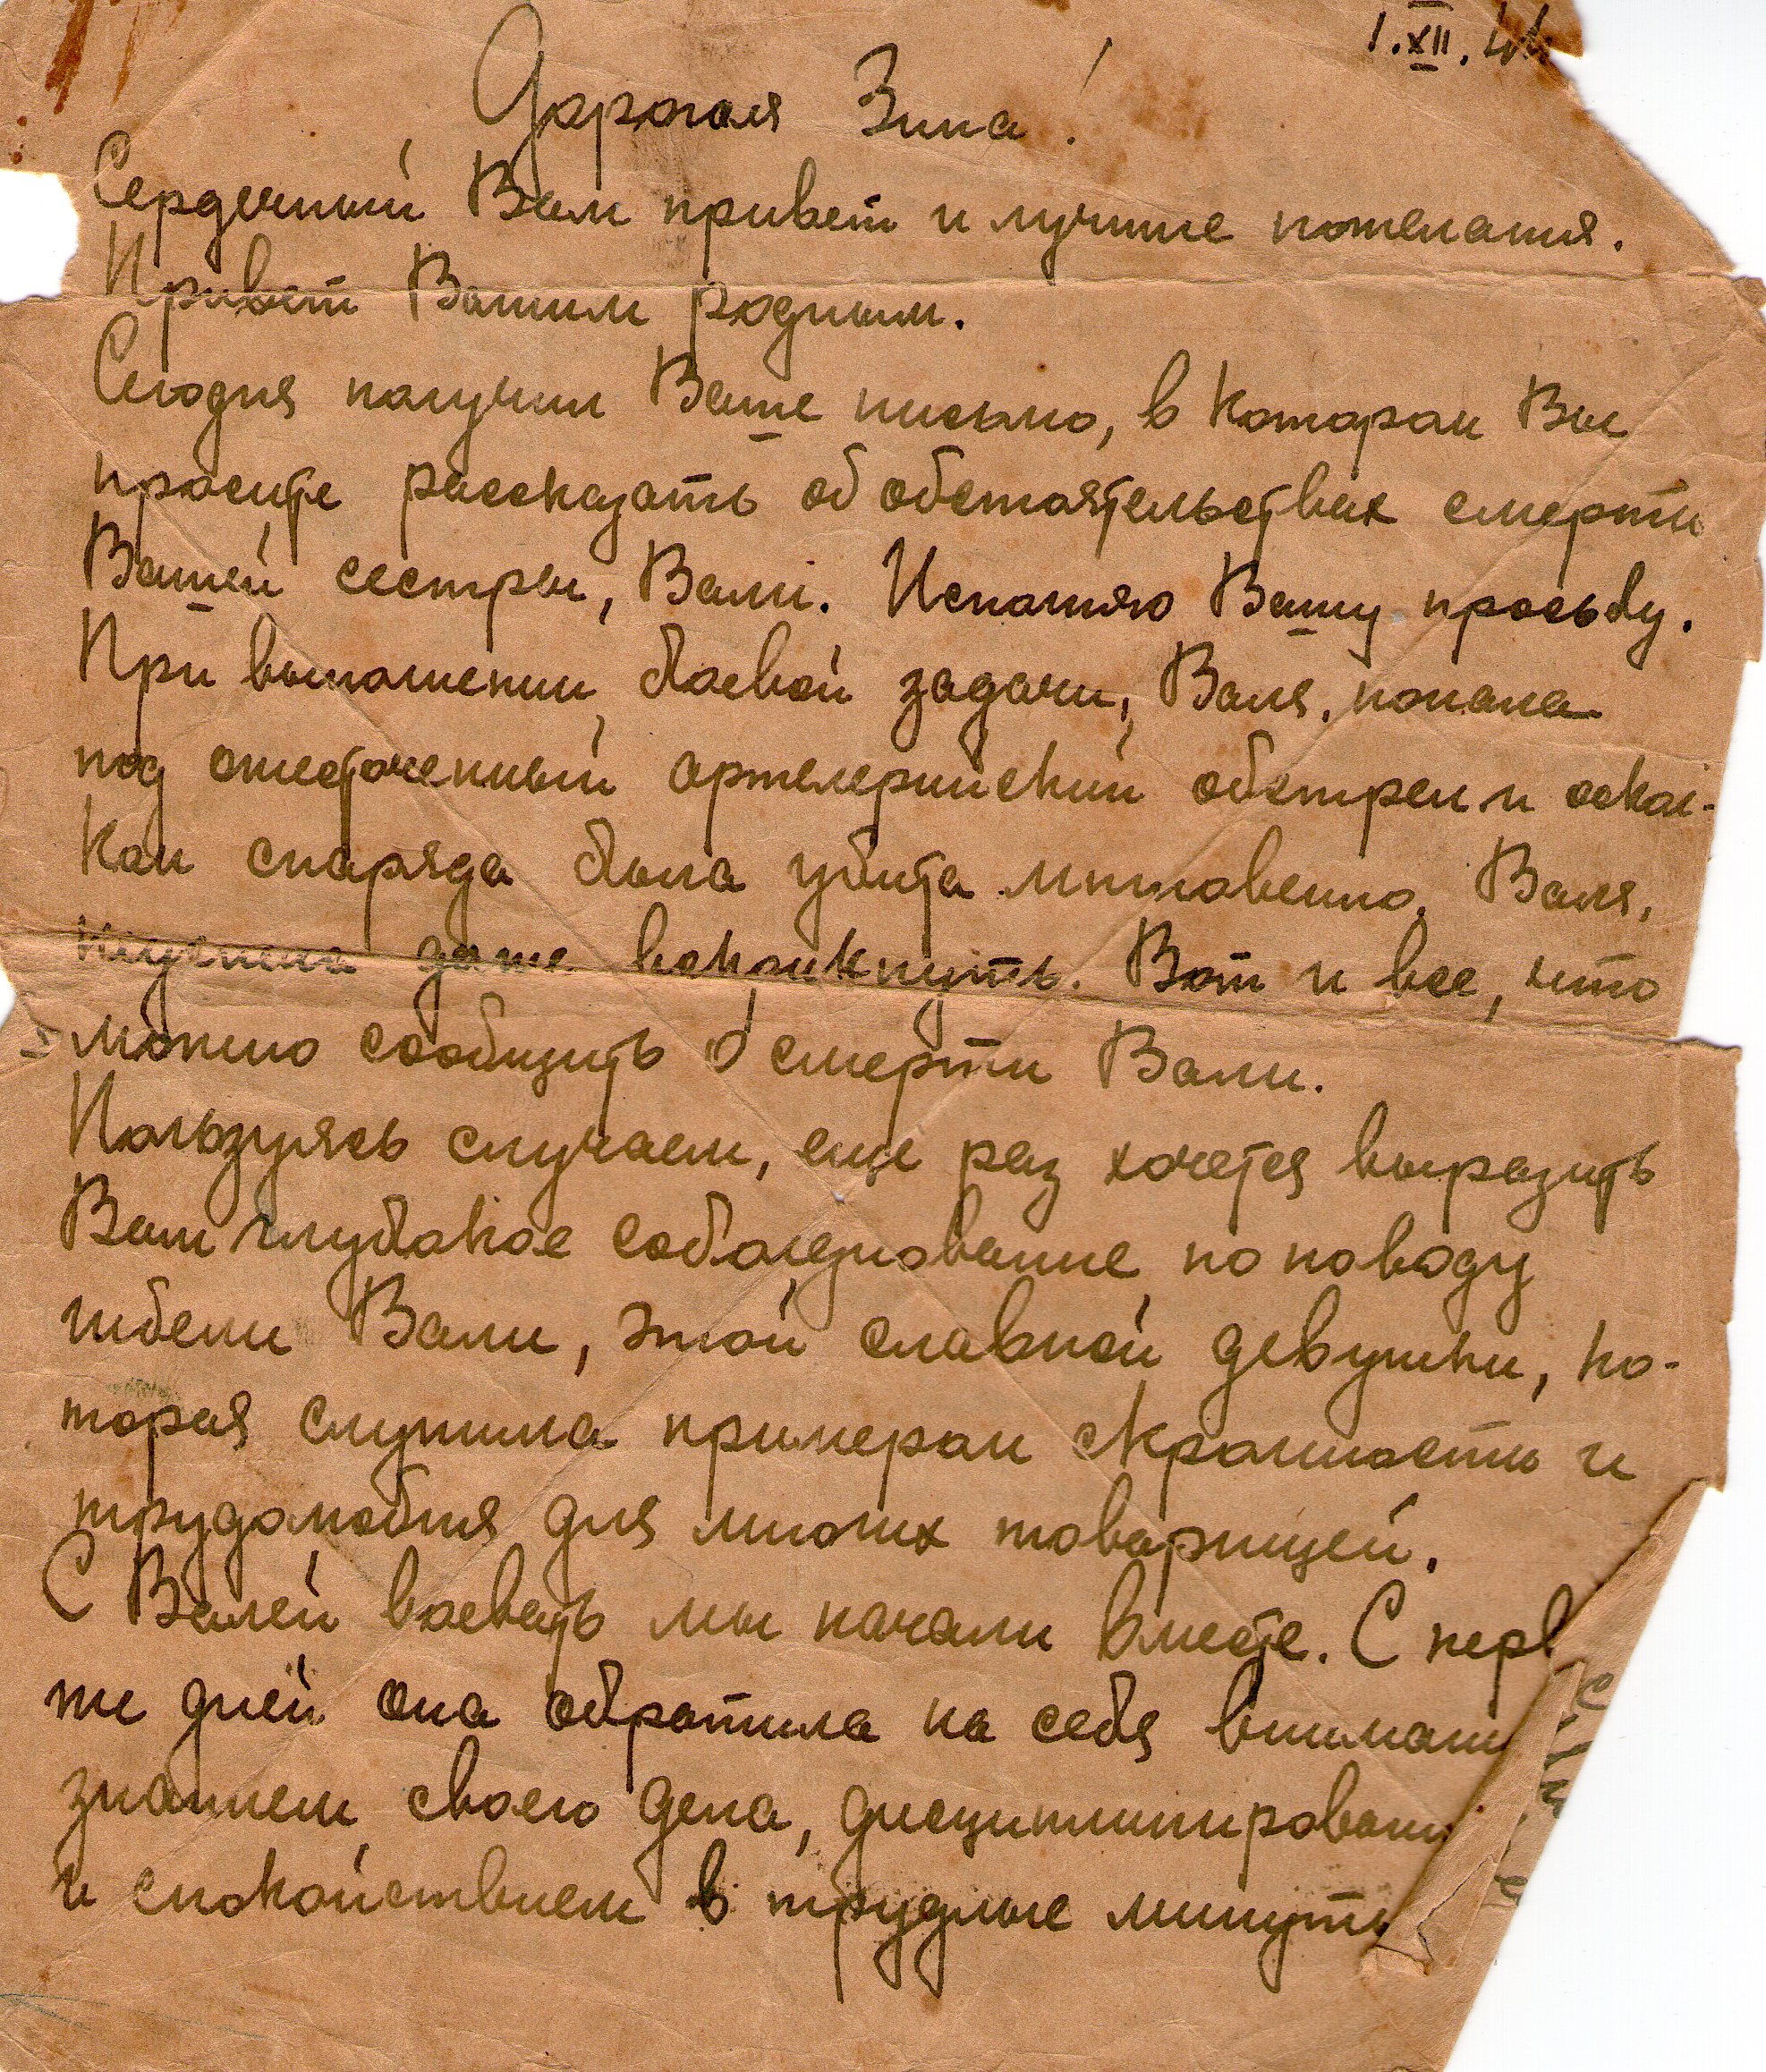 1.XII.44
Дорогая Зина!
Сердечный Вам привет и лучшие пожелания.
Привет Вашим родным.
Сегодня получил Ваше письмо, в котором Вы
просите рассказать об обстоятельствах смерти
Вашей сестры, Вали. Исполняю Вашу просьбу.
При выполнении боевой задачи, Валя, попала
под ожесточенный артелерийский обстрел и оскол-
ком снаряда была убита мгновенно. Валя,
неуспела даже вскрикнуть. Вот и все, что
можно сообщить о смерти Вали.
Пользуясь случаем, еще раз хочется выразить
Вам глубокое соболезнование по поводу
гибели Вали, этой славной девушки, ко-
торая служила примером скромности и
трудолюбия для многих товарищей.
С Валей воевать мы начали вместе. С перв
же дней она обратила на себя внимани
знанием своего дела, дисциплинированн
и спокойствием в трудные минуты